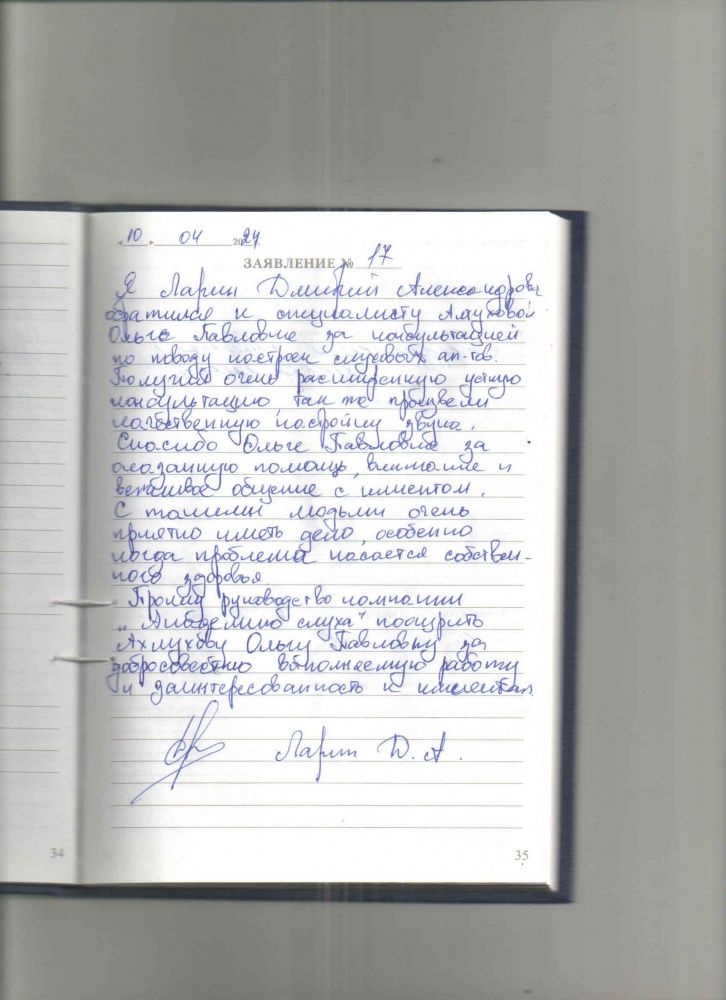 « 10 » 04 2024
ЗАЯВЛЕНИЕ № 17
Я Ларин Дмитрий Александрович
обратился к специалисту
Ольге Павловне за консультацией
по поводу настроек слуховых ап-тов.
Получил очень расширенную устную
консультацию, так же произвели
качественную настройку звука.
Спасибо Ольге Павловне за
оказанную помощь, внимание и
вежливое общение с клиентом.
С такими людьми очень
приятно иметь дело, особенно
когда проблема касается собствен-
ного здоровья.
Прошу руководство компании
"Академию слуха" поощрить
Ахлухову Ольгу Павловну за
добросовестно выполняемую работу
и заинтересованность к клиентам.
Ларин Д.А.
34
35